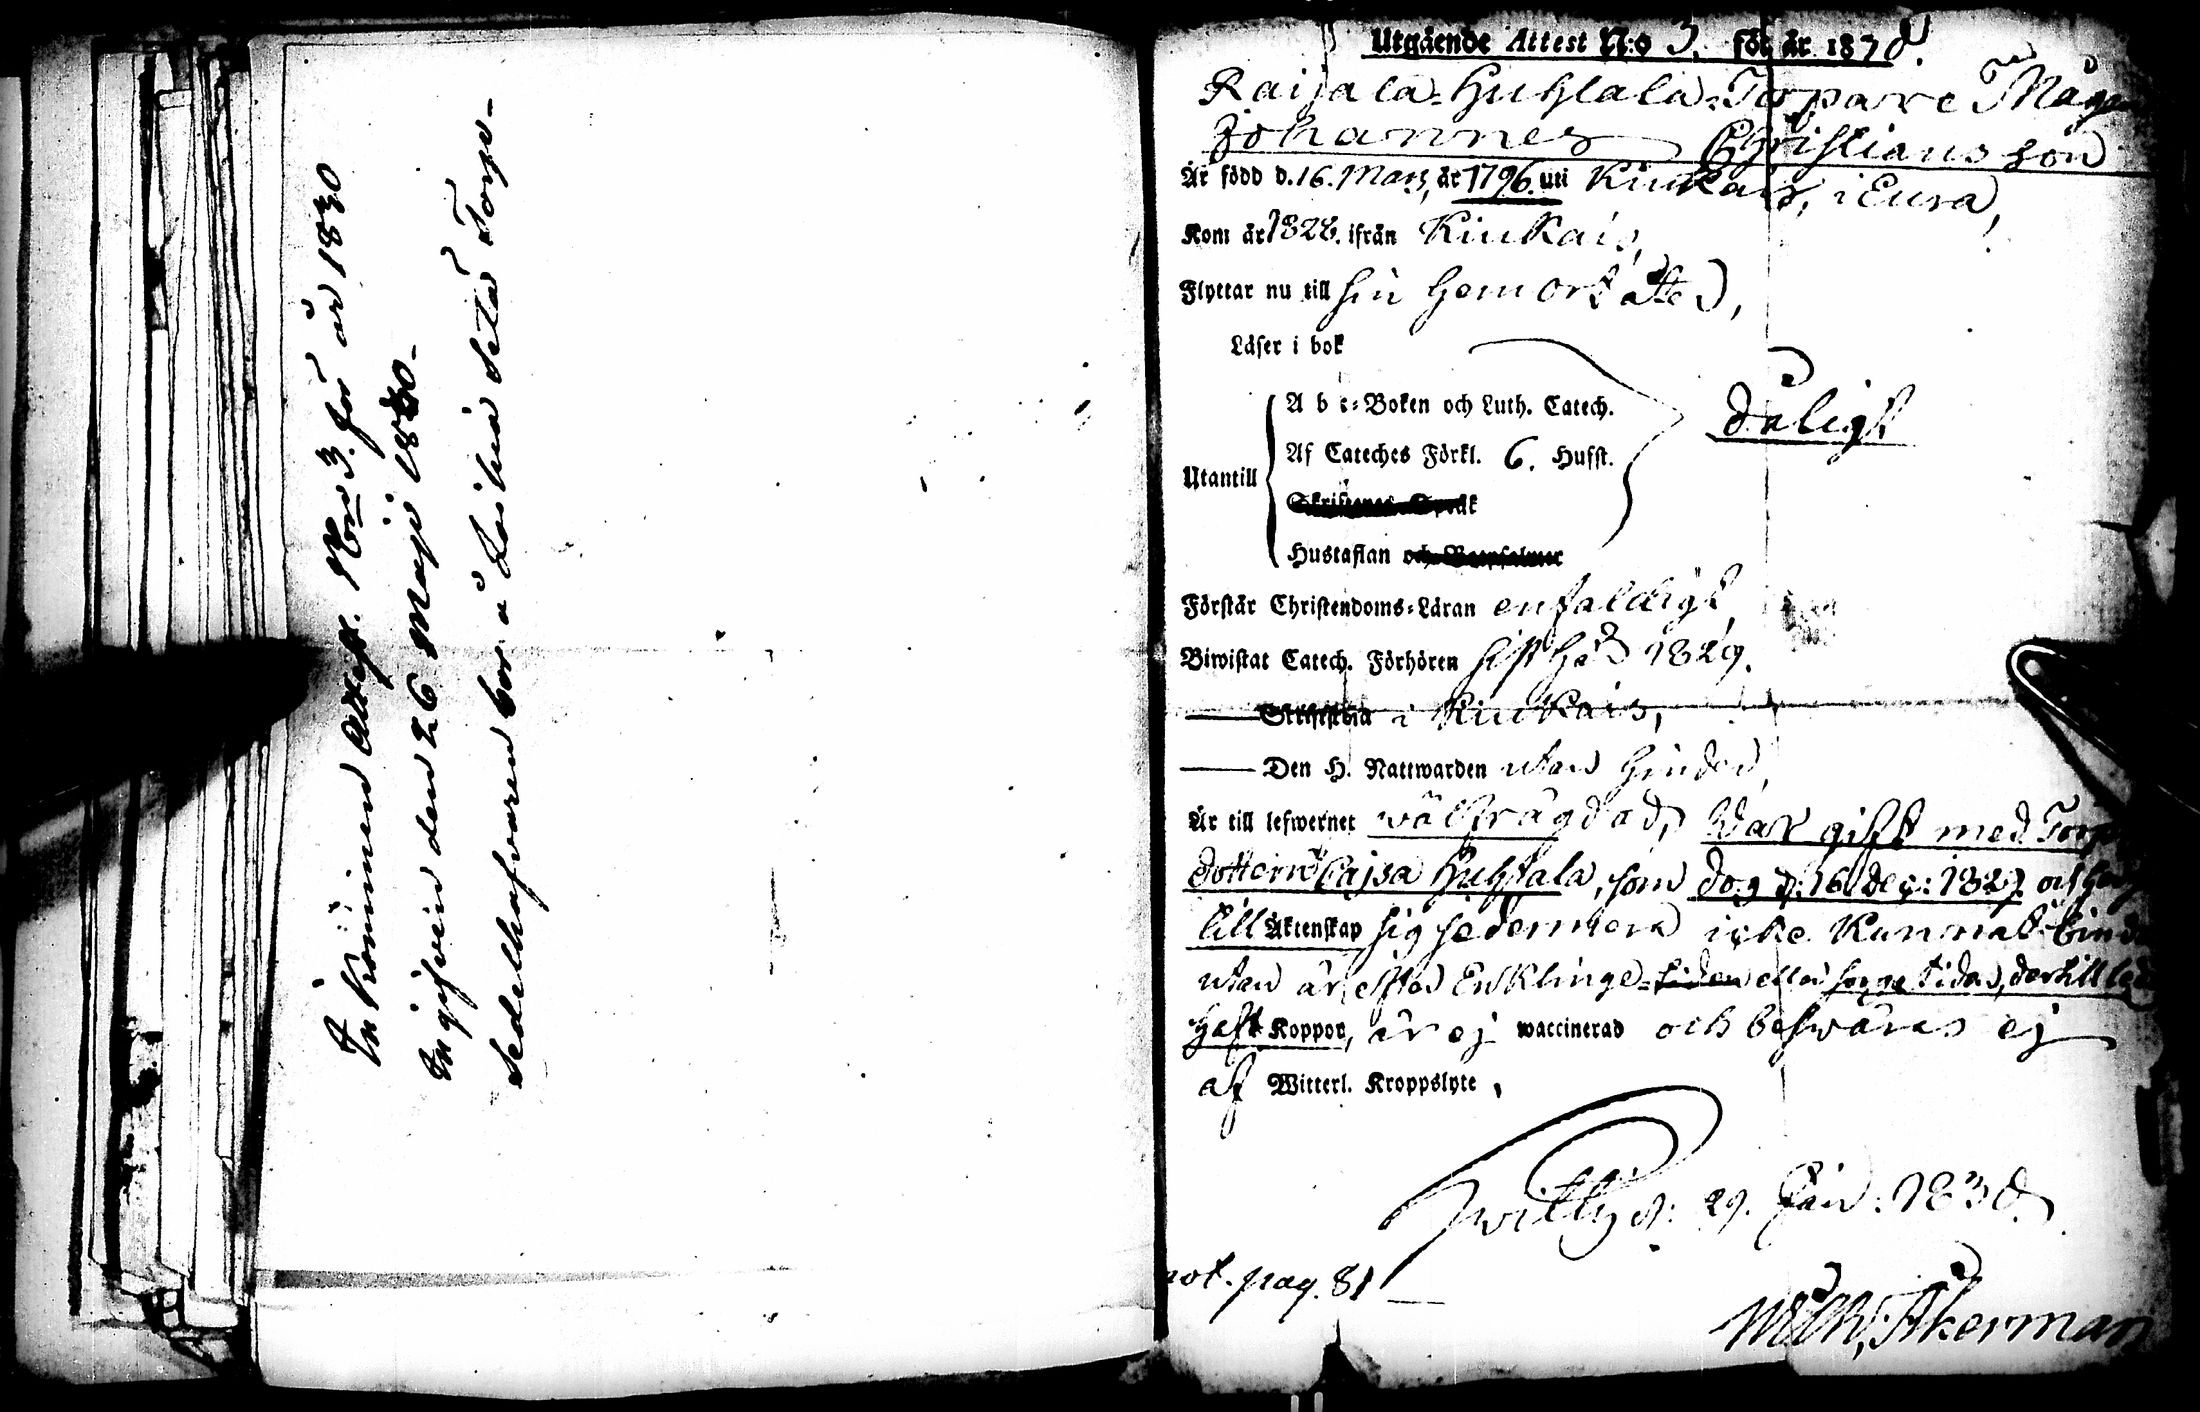 Inkommen Attest. No 3. för år 1830
Ingifven den 26 Maji 1830.
Sedelhafvaren bor å detta Torp-
Utgående Attest N:o 3. för år 1830.
Raijala-Huhtala-Torpare Mågen
Johannes Christiansson
Är född d. 16. Mars, år 1796. uti Kiukais, i Eura,
Kom år 1828. ifrån Kiukais,
Flyttar nu till sin hemort åter,
Läser i bok
A b c-Boken och Luth. Catech.
dåligt
Af Cateches Förkl. 6. Hufst.
Utantill
Skriftenes Språk
Hustaflan och Botpsalmer
Förstår Christendoms-Läran enfaldigt,
Biwistat Catech. Förhören sist här 1829.
Skriftskola i Kiukais,
Den H. Nattwarden utan hinder,
Är till lefwernet wälfrägdad, War gift med Torp
dottern Cajsa Huhtala, som dog d: 16. Dec: 1829. och
till Äktenskap sig sedermera icke kunnat binda
utan är efter Enklinge-tiden eller sorge tiden, dertill ledig
Haft Koppor, är ej waccinerad och beswäras ej
af Witterl. Kroppslyte,
d: 29. Jan: 1830.
not. pag. 81
Åkerman